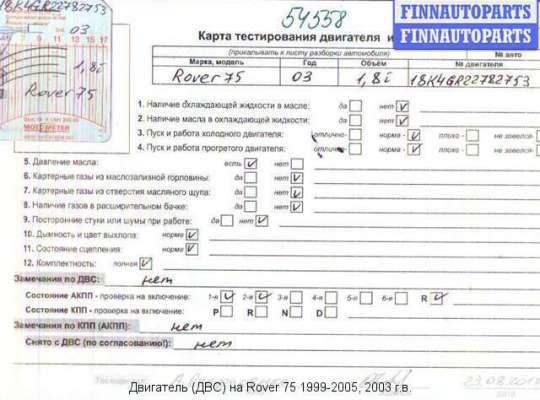 18K4GR22782753
03
9 11 13 15 17
1,8i
Rover 75
MOTOMETER
54558
FINNAUTOPARTS
FINNAUTOPARTS
Карта тестирования двигателя и
(прикалывать к листу разборки автомобиля)
№ авто
Марка, модель Год Объём № двигателя
Rover 75 03 1,8i 18K4GR22782753
1. Наличие охлаждающей жидкости в масле: да нет V
2. Наличие масла в охлаждающей жидкости: да нет V
3. Пуск и работа холодного двигателя: отлично- норма - V плохо - не завелся-
4. Пуск и работа прогретого двигателя: отлично- норма - V плохо - не завелся-
5. Давление масла: есть V нет
6. Картерные газы из маслозаливной горловины: да нет V
7. Картерные газы из отверстия масляного щупа: да нет V
8. Наличие газов в расширительном бачке: да нет V
9. Посторонние стуки или шумы при работе: да нет V
10. Дымность и цвет выхлопа: норма V
11. Состояние сцепления: норма V
12. Комплектность: полная V
Замечания по ДВС: нет
Состояние АКПП - проверка на включение: 1-я V 2-я V 3-я 4-я 5-я 6-я R V
Состояние КПП - проверка на включение: P R N D
Замечания по КПП (АКПП): нет
Снято с ДВС (по согласованию!): нет
Двигатель (ДВС) на Rover 75 1999-2005, 2003 г.в.